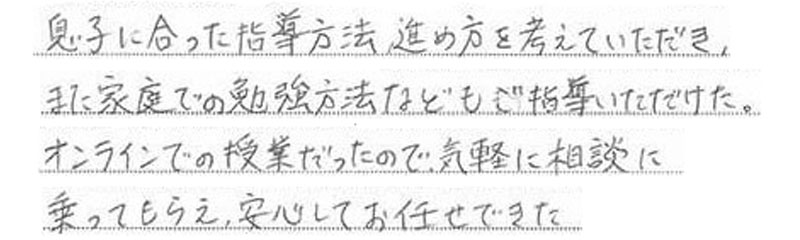 息子に合った指導方法、進め方を考えていただき、
また家庭での勉強方法などもご指導いただけた。
オンラインでの授業だったので、気軽に相談に
乗ってもらえ、安心してお任せできた